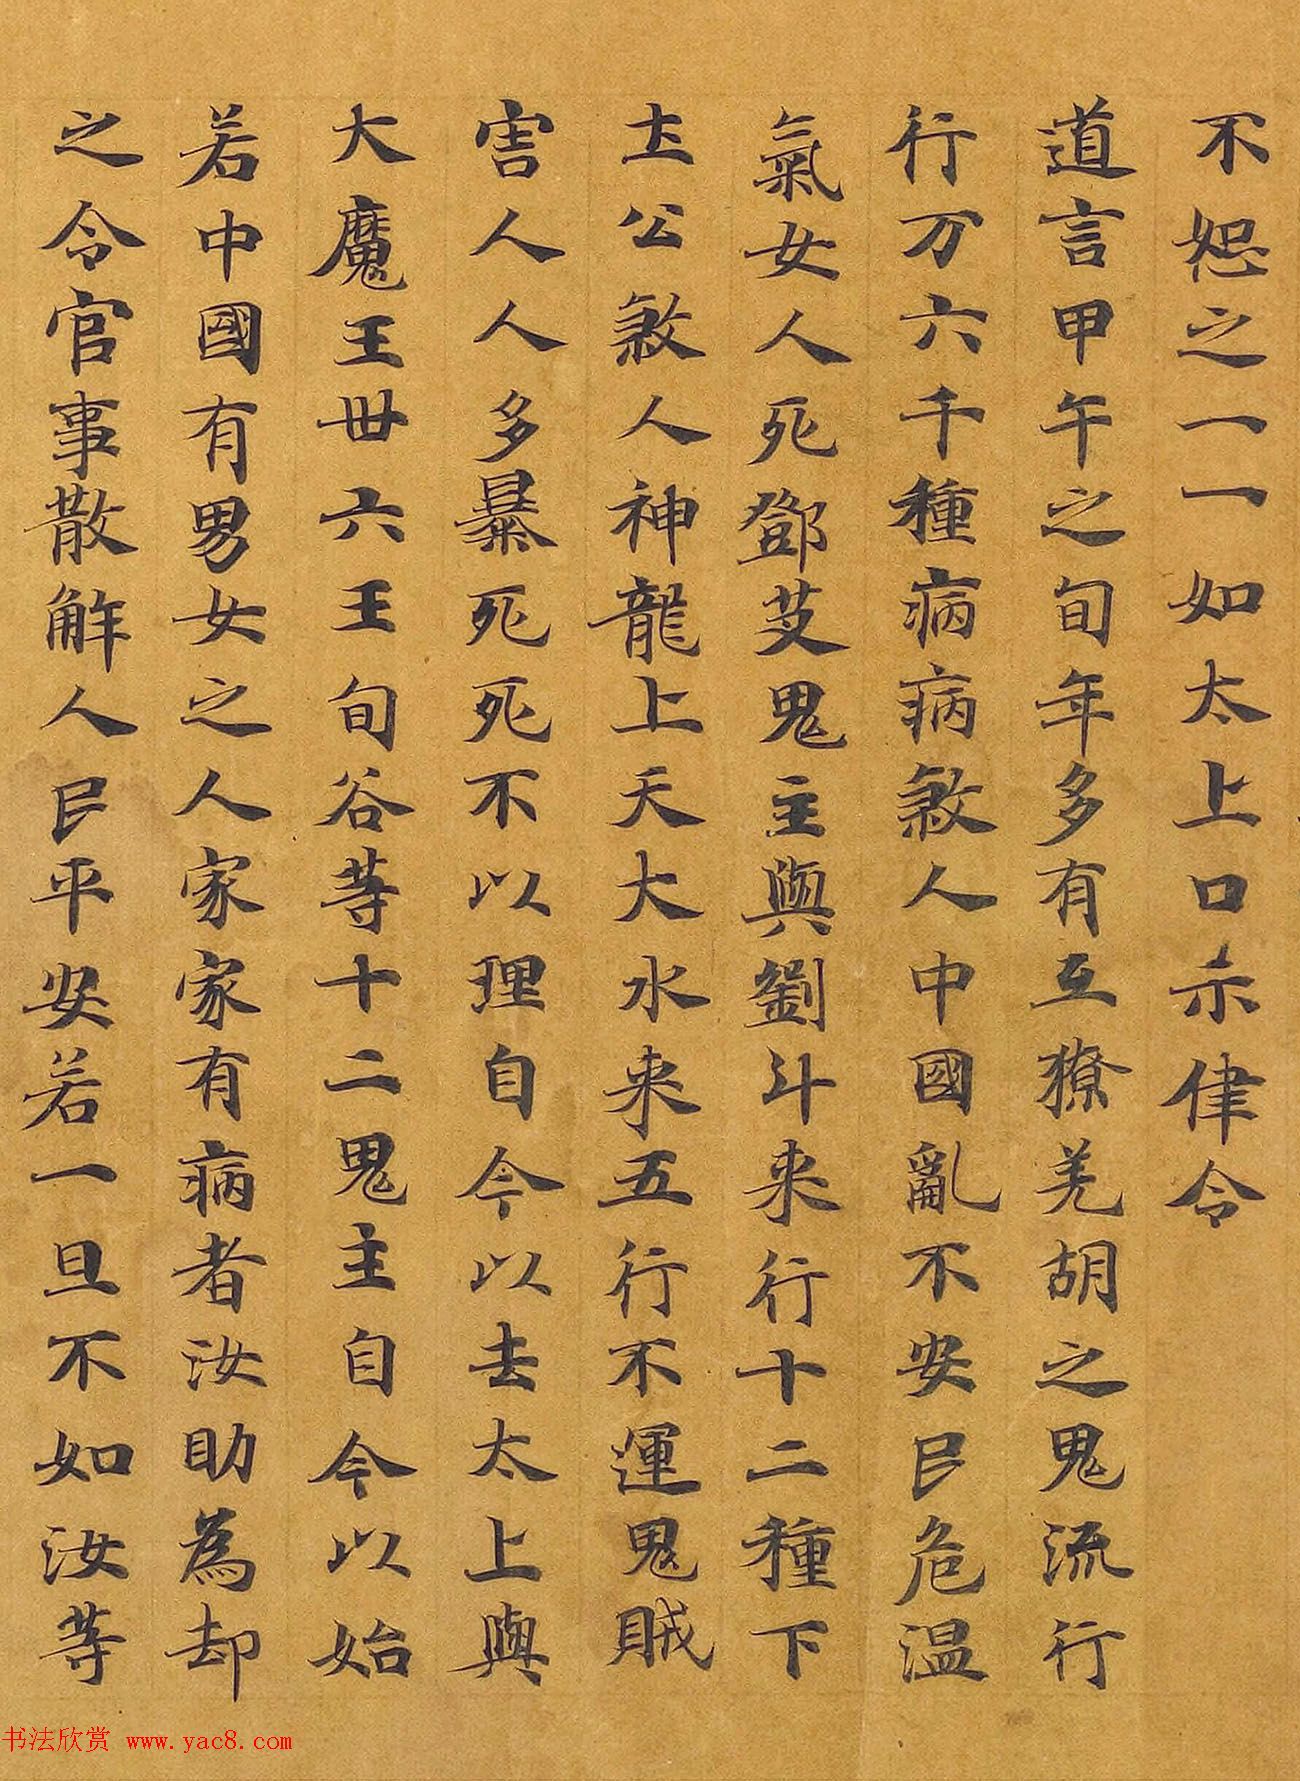 不恕之一一如太上口示律令
道言甲午之旬年多有互獠羌胡之鬼流行
行万六千種病病煞人中國亂不安民危温
氣女人死鄧艾鬼主與劉斗来行十二種下
土公煞人神龍上天大水来五行不運鬼賊
害人人多暴死死不以理自今以去太上與
大魔王丗六王旬谷等十二鬼主自今以始
若中國有男女之人家家有病者汝助為却
之令官事散解人民平安若一旦不如汝等
书法欣赏 www.yac8.com